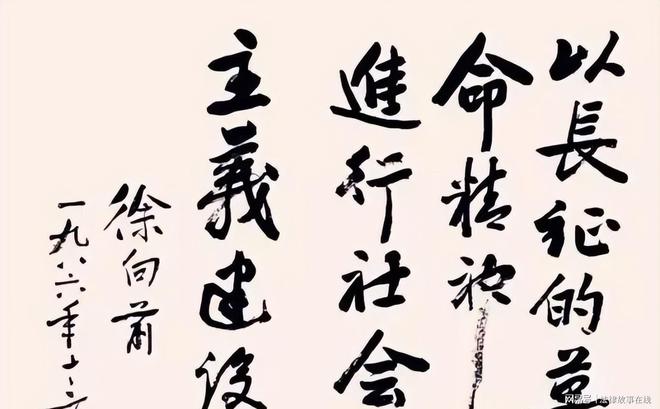 以長征的革
命精神
進行社会
主義建設
徐向前
一九八六年十二
网易号 | 法律故事在线